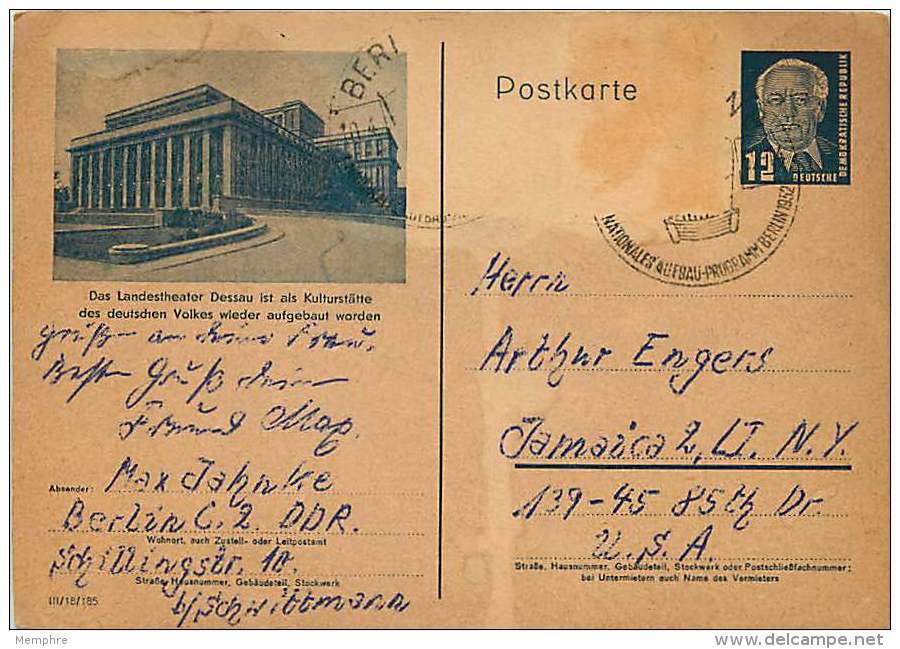 Das Landestheater Dessau ist als Kulturstätte
des deutschen Volkes wieder aufgebaut worden
Grüße an deine Frau.
Besten Gruß dein
Freund Max.
Absender: Max Jahnke
Berlin C. 2. DDR.
Wohnort, auch Zustell- oder Leitpostamt
Schillingstr. 10.
Straße, Hausnummer, Gebäudeteil, Stockwerk
b/Schwittmann
III/18/185
BERL
Postkarte
12
DEUTSCHE
DEMOKRATISCHE REPUBLIK
NATIONALES AUFBAU-PROGRAMM BERLIN 1952
Herrn
Arthur Engers
Jamaica 2, LI. N.Y.
139-45 85th Dr.
U.S.A.
Straße, Hausnummer, Gebäudeteil, Stockwerk oder Postschließfachnummer;
bei Untermietern auch Name des Vermieters
Memphre
delcampe.net